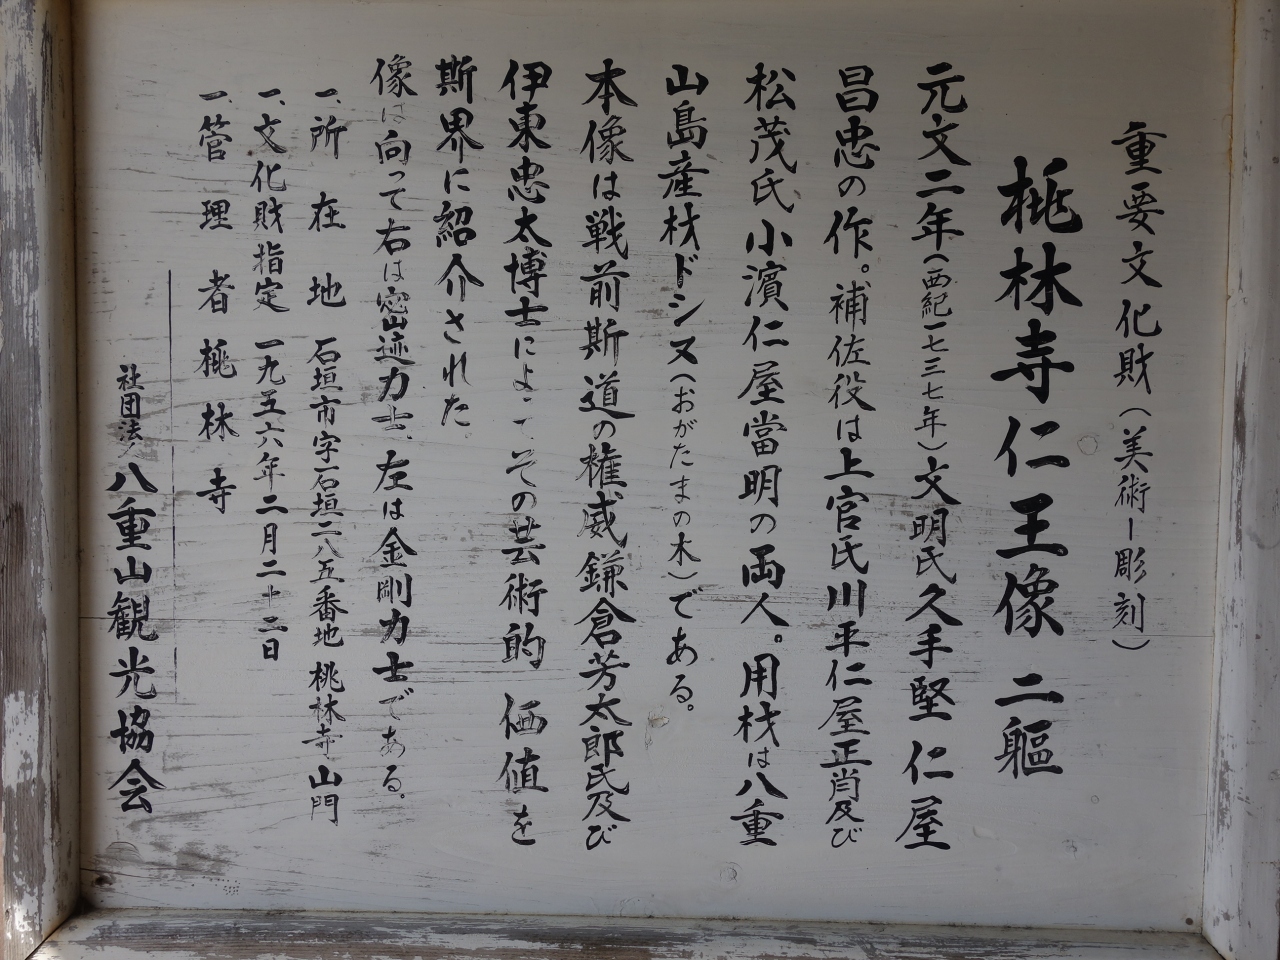 重要文化財（美術ー彫刻）
桃林寺仁王像 二軀
元文二年（西紀一七三七年）文明氏久手堅 仁屋
昌忠の作。補佐役は上官氏川平仁屋正肖及び
松茂氏小濱仁屋當明の両人。用材は八重
山島産材ドシヌ（おがたまの木）である。
本像は戦前斯道の権威鎌倉芳太郎氏及び
伊東忠太博士によってその芸術的 価値を
斯界に紹介された
像は向って右は密迹力士、左は金剛力士である。
一、所在地 石垣市字石垣二八五番地 桃林寺山門
一、文化財指定 一九五六年二月二十二日
一、管理者 桃林寺
社団法人 八重山観光協会